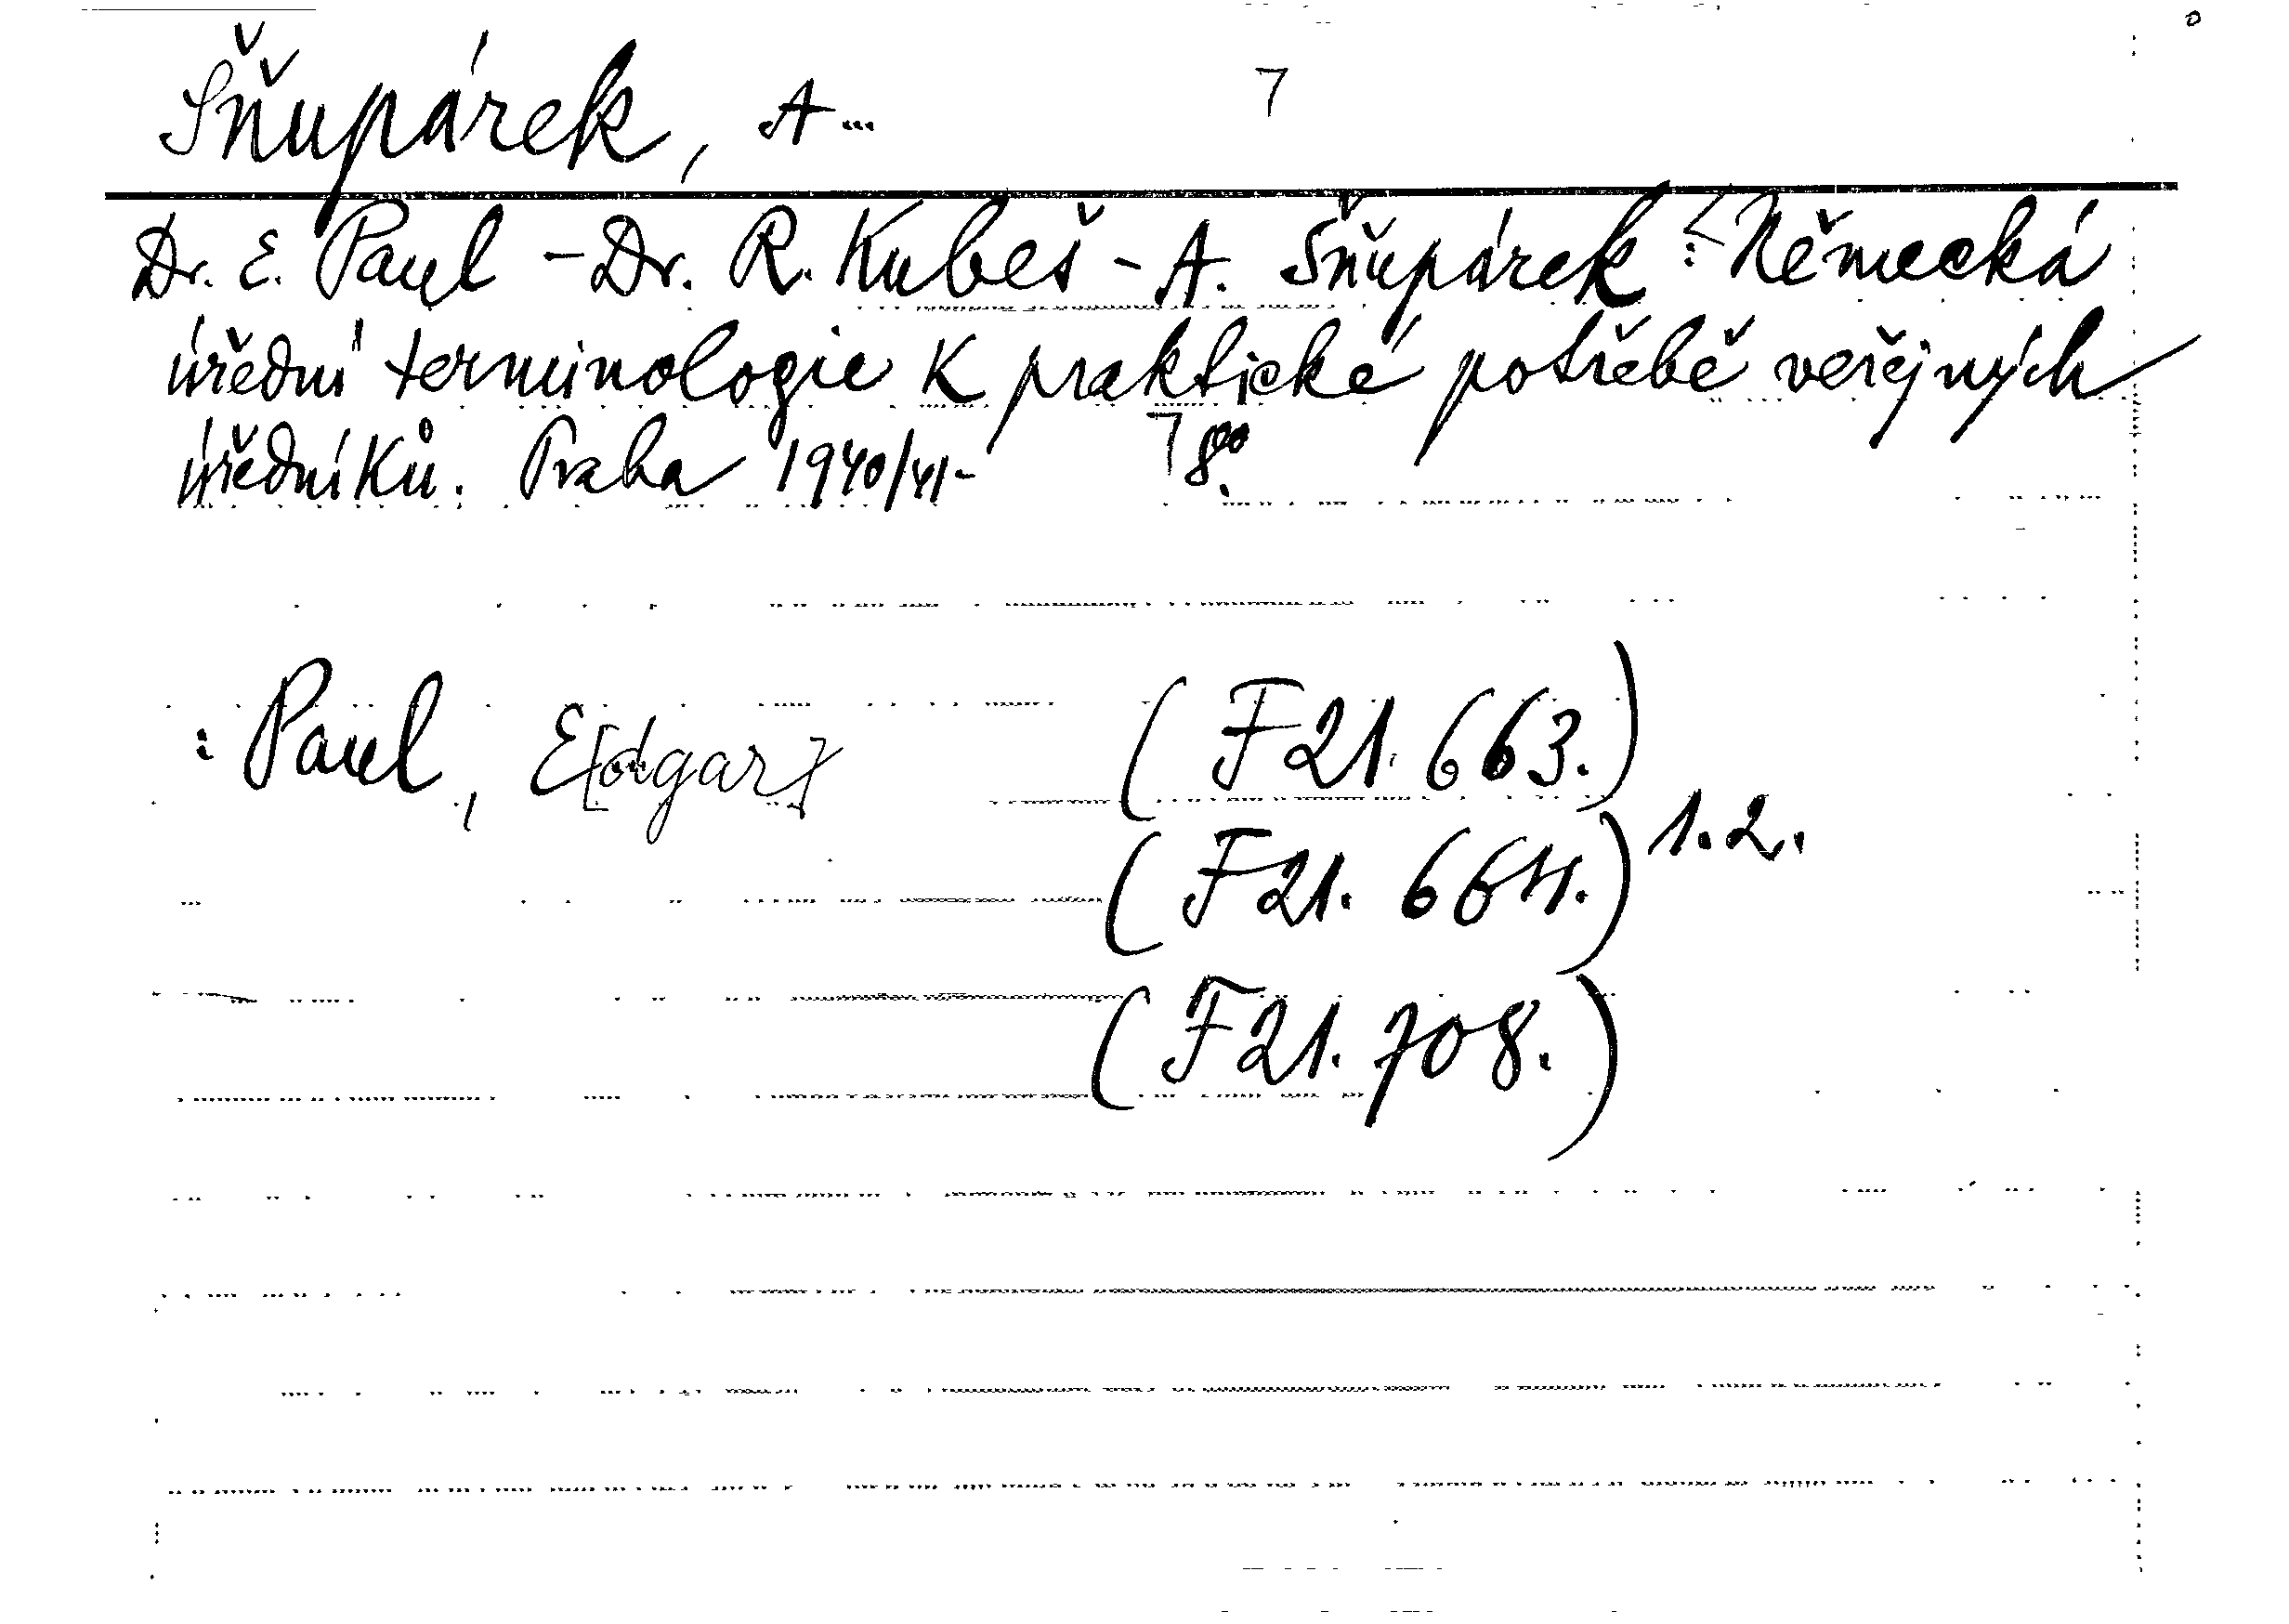 Šňupárek, A... 7
Dr. E. Paul - Dr. R. Kubeš - A. Šňupárek: Německá
úřední terminologie k praktické potřebě veřejných
úředníků. Praha 1940/41- 7 8°°.
: Paul, E[dgar] (F 21. 663.)
(F 21. 664.) 1.2.
(F 21. 708.)